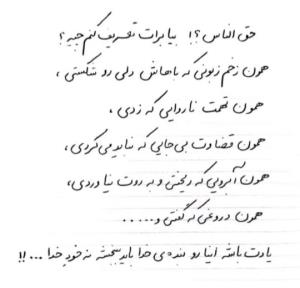 حق الناس ؟! بیا برات تعریف کنم چیه ؟
همون زخم زبونی که باهاش دلی رو شکستی ،
همون تهمت ناروایی که زدی ،
همون قضاوت بی جایی که نباید می کردی ،
همون آبرویی که ریختی و به روت نیاوردی ،
همون دروغی که گفتی و.....
یادت باشه اینا رو بنده ی خدا باید ببخشه نه خود خدا ...!!